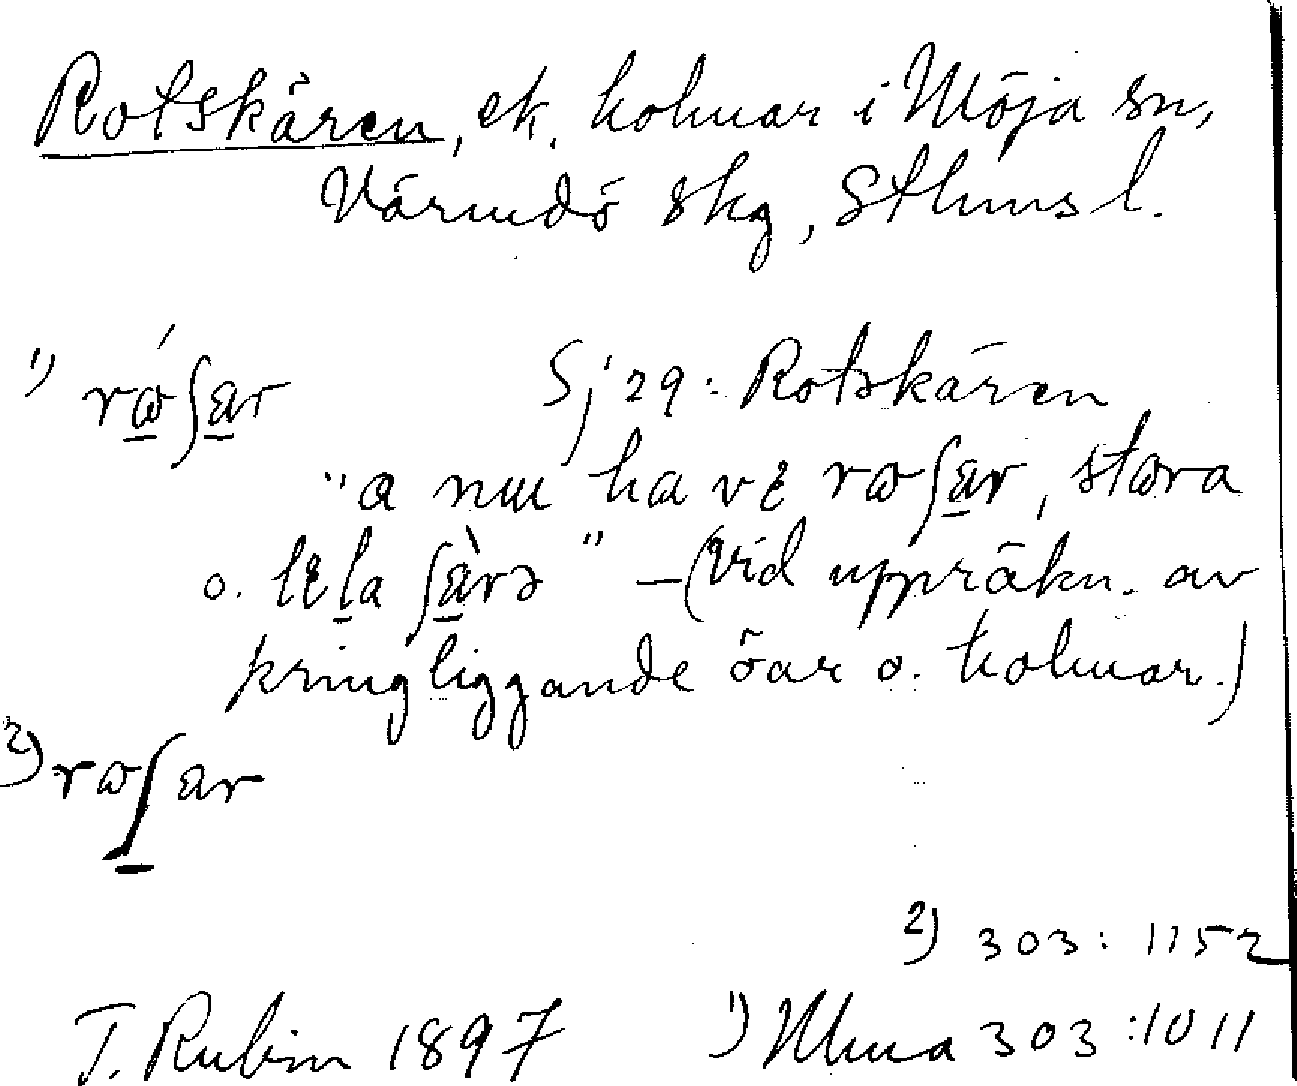 Rotskären, ek. holmar i Möja sn,
Värmdö skg, Sthms l.
1) rɷ́ʃær Sj 29: Rotskären
"a nɯ ha vɛ rɷʃær, stɷra
o. lɛla ʃæ̀rə" – (vid uppräkn. av
kringliggande öar o. holmar.)
2) rɷʃær
2) 303: 1152
T. Rubin 1897 1) Ulma 303:1011